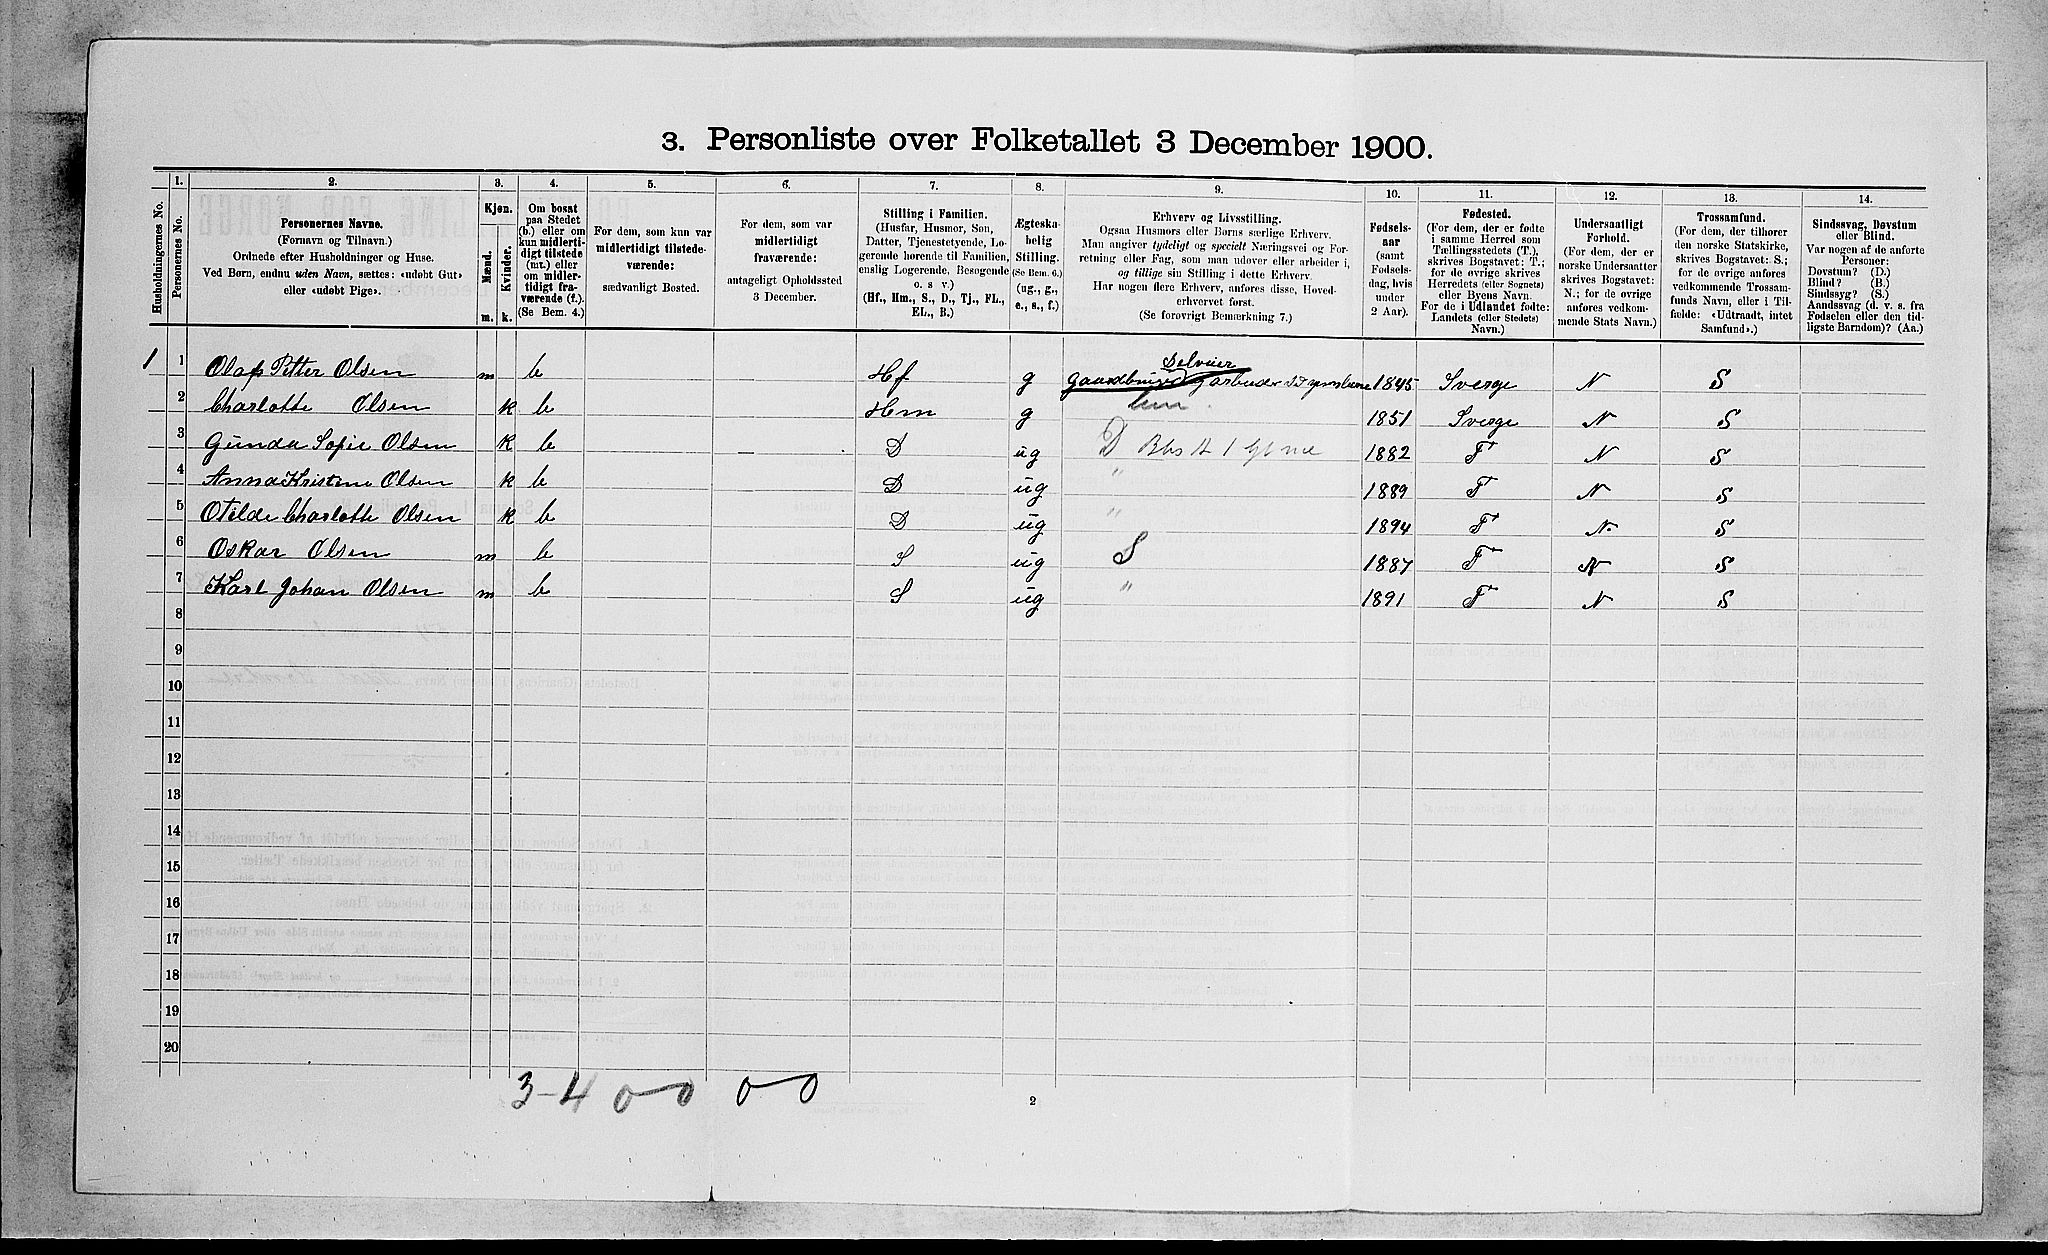 3. Personliste over Folketallet 3 December 1900.
Husholdningernes No.
1.
Personernes No.
2.
Personernes Navne.
(Fornavn og Tilnavn.)
Ordnede efter Husholdninger og Huse.
Ved Børn, endnu uden Navn, sættes: «udøbt Gut»
eller «udøbt Pige».
3.
Kjøn.
Mænd.
Kvinder.
m.
k.
4.
Om bosat
paa Stedet
(b.) eller om
kun midlerti-
digt tilstede
(mt.) eller
om midler-
tidigt fra-
værende (f.).
(Se Bem. 4.)
5.
For dem, som kun var
midlertidigt tilstede-
værende:
sædvanligt Bosted.
6.
For dem, som var
midlertidigt
fraværende:
antageligt Opholdssted
3 December.
7.
Stilling i Familien.
(Husfar, Husmor, Søn,
Datter, Tjenestetyende, Lo-
gerende hørende til Familien,
enslig Logerende, Besøgende
o. s v.)
(Hf., Hm., S., D., Tj., FL.,
EL., B.)
8.
Ægteska-
belig
Stilling.
(Se Bem. 6.)
(ug., g.,
e., s., f.)
9.
Erhverv og Livsstilling.
Ogsaa Husmors eller Børns særlige Erhverv.
Man angiver tydeligt og specielt Næringsvei og For-
retning eller Fag, som man udøver eller arbeider i,
og tillige sin Stilling i dette Erhverv.
Har nogen flere Erhverv, anføres disse, Hoved-
erhvervet først.
(Se forøvrigt Bemærkning 7.)
10.
Fødsels-
aar
(samt
Fødsels-
dag, hvis
under
2 Aar).
11.
Fødested.
(For dem, der er fødte
i samme Herred som
Tællingsstedets (T.),
skrives Bogstavet: T.;
for de øvrige skrives
Herredets (eller Sognets)
eller Byens Navn.
For de i Udlandet fødte:
Landets (eller Stedets)
Navn.)
12.
Undersaatligt
Forhold.
(For dem, der er
norske Undersaatter
skrives Bogstavet:
N.; for de øvrige
anføres vedkom-
mende Stats Navn.)
13.
Trossamfund.
(For dem, der tilhører
den norske Statskirke,
skrives Bogstavet: S.;
for de øvrige anføres
vedkommende Trossam-
funds Navn, eller i Til-
fælde: «Udtraadt, intet
Samfund».)
14.
Sindssvag, Døvstum
eller Blind.
Var nogen af de anførte
Personer:
Døvstum? (D.)
Blind? (B.)
Sindssyg? (S.)
Aandssvag (d. v. s. fra
Fødselen eller den tid-
ligste Barndom)? (Aa.)
1 1 Olaf Petter Olsen m b Hf g Selveier Gaardbruger 1845 Sverge N S
2 Charlotte Olsen k b Hm g 1851 Sverge N S
3 Gunda Sofie Olsen k b D ug D 1882 T N S
4 Anna Kristine Olsen k b D ug " 1889 T N S
5 Otilde Charlotte Olsen k b D ug " 1894 T N. S
6 Oskar Olsen m b S ug S 1887 T N S
7 Karl Johan Olsen m b S ug " 1891 T N S
8
9
10
11
12
13
14
15
16
17
18
19
20
3-4 0-0 0-0
2